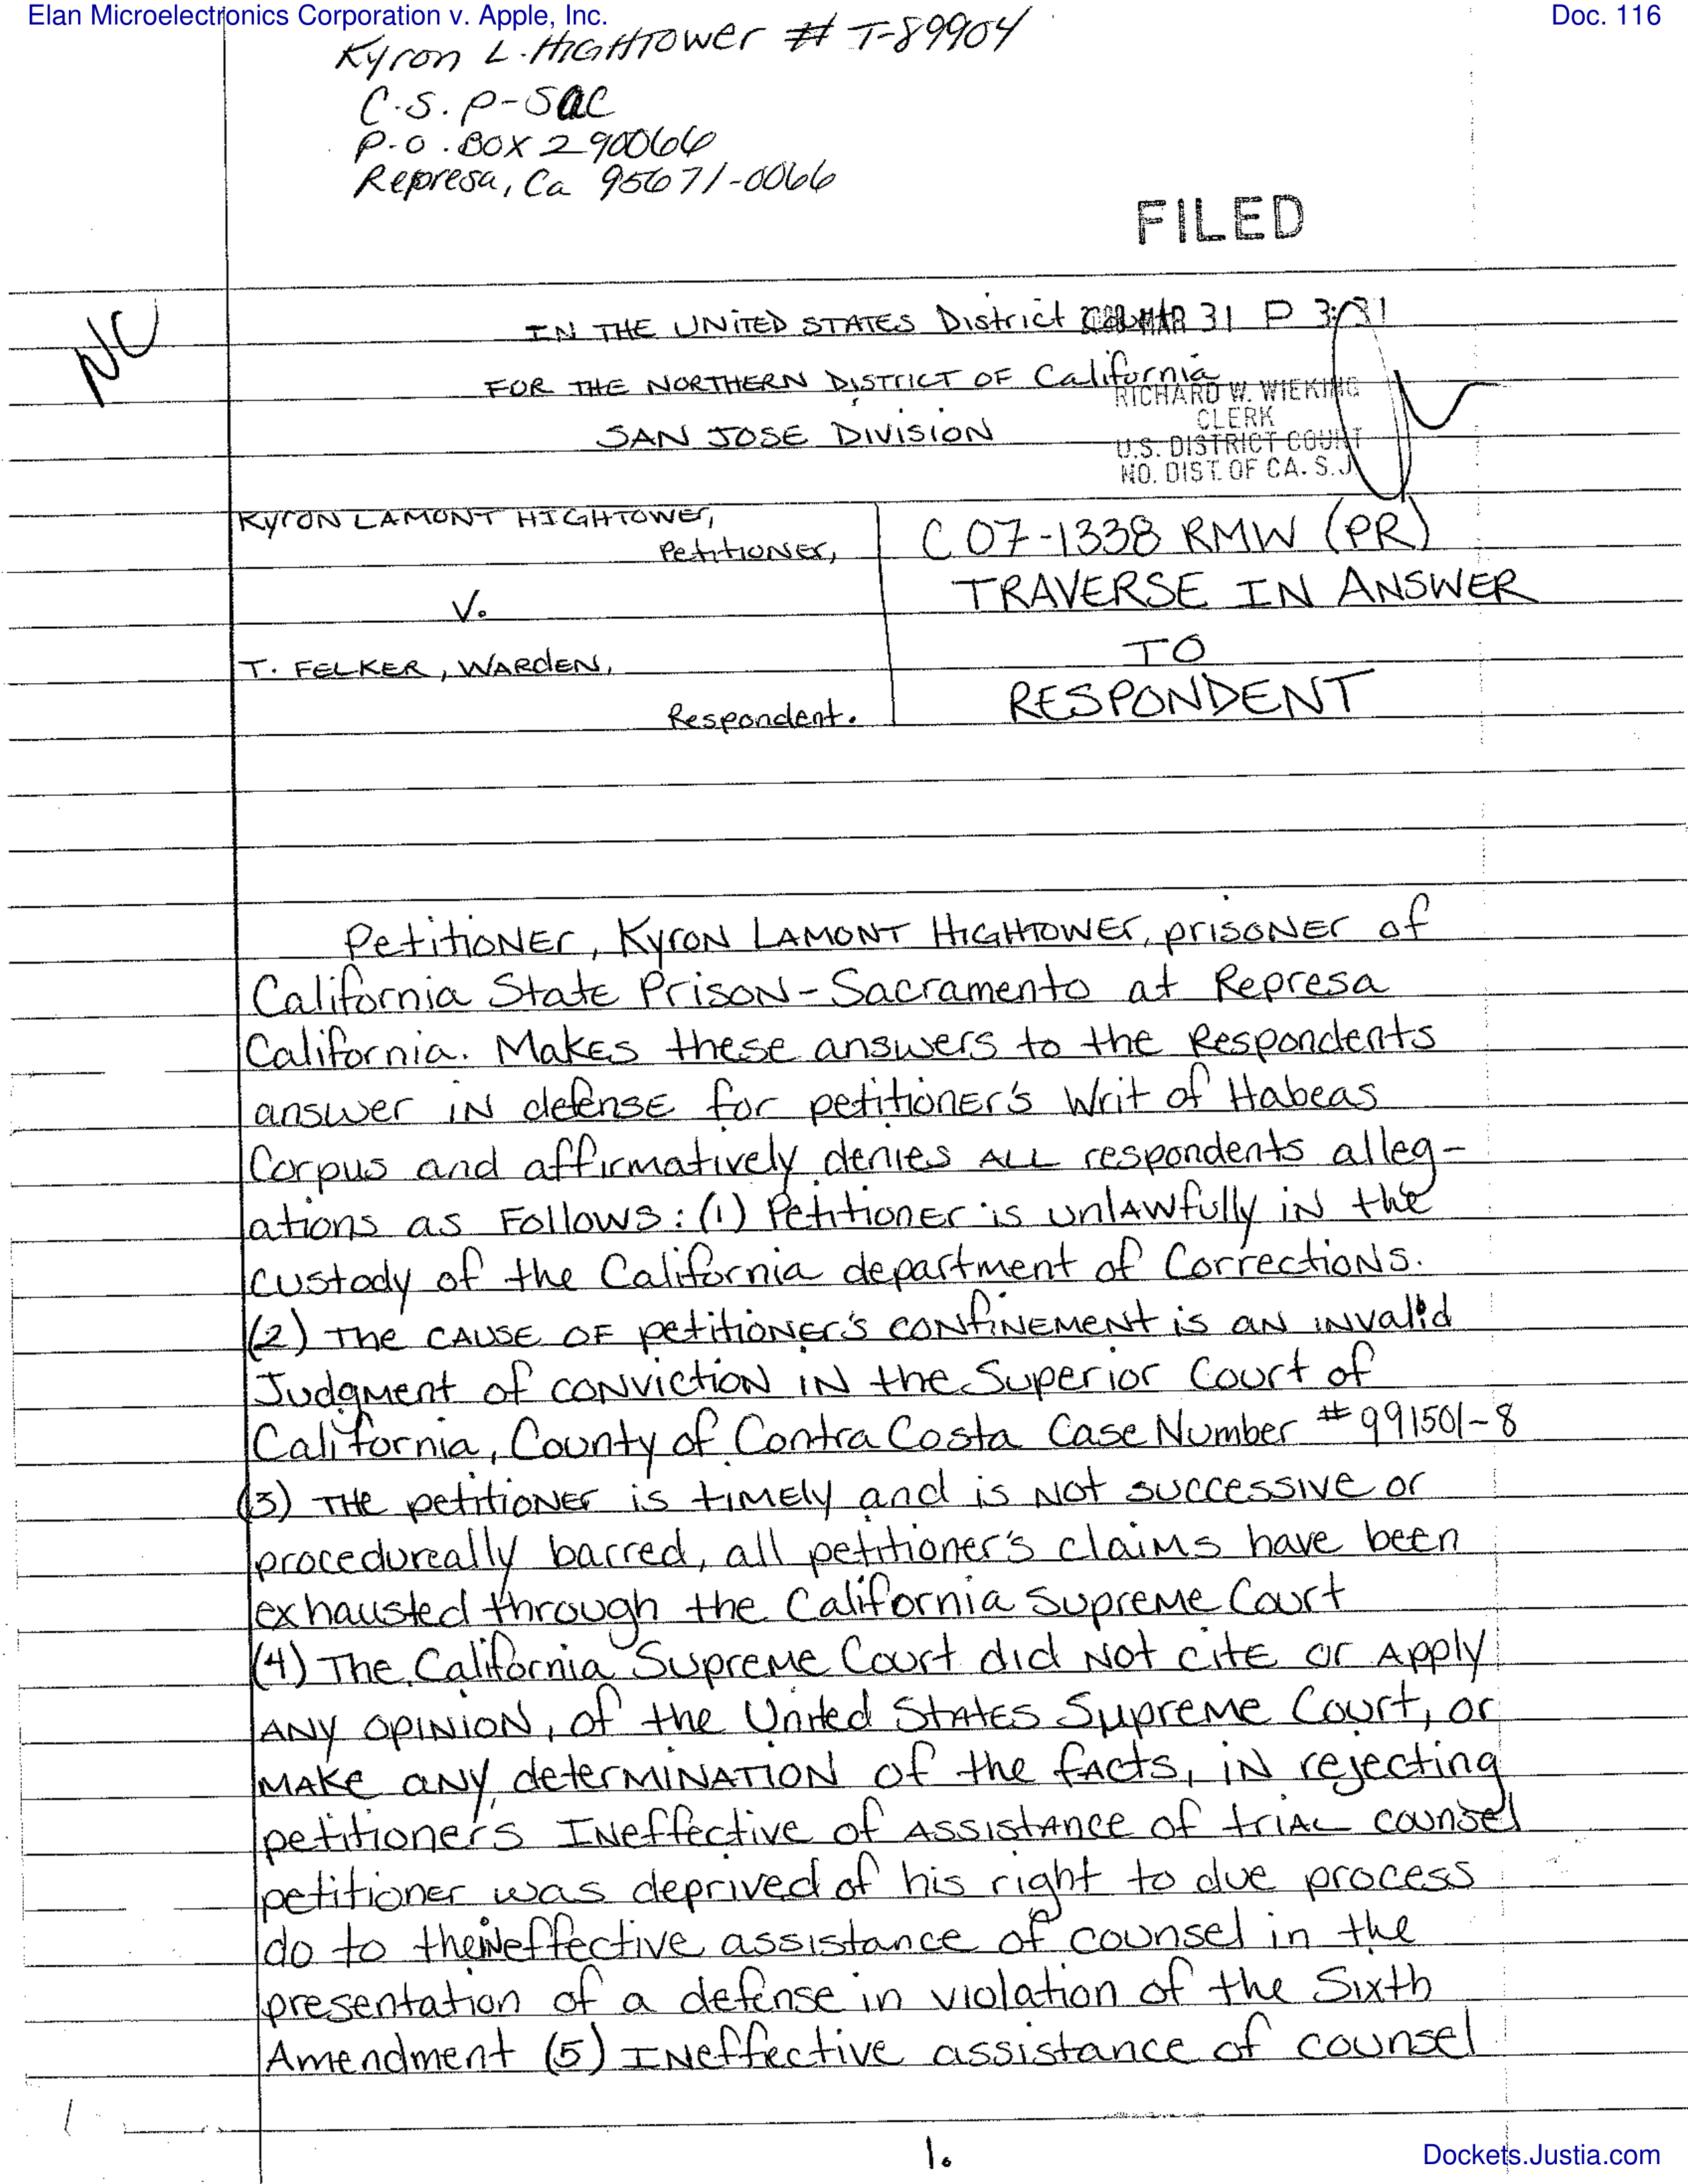 Elan Microelectronics Corporation v. Apple, Inc. Doc. 116
Kyron L. HIGHTOWER # T-89904
C.S.P-SAC
P.O. BOX 290066
Represa, Ca 95671-0066
FILED
NC
IN THE UNITED STATES District Court MAR 31 P 3:31
FOR THE NORTHERN DISTRICT OF California
RICHARD W. WIEKING
CLERK
SAN JOSE DIVISION
U.S. DISTRICT COURT
NO. DIST. OF CA. S.J.
KYRON LAMONT HIGHTOWER,
Petitioner,
C 07-1338 RMW (PR)
TRAVERSE IN ANSWER
V.
TO
T. FELKER, WARDEN,
RESPONDENT
Respondent.
Petitioner, Kyron LAMONT HIGHTOWER, prisoner of
California State Prison-Sacramento at Represa
California. Makes these answers to the Respondents
answer in defense for petitioner's Writ of Habeas
Corpus and affirmatively denies ALL respondents alleg-
ations as Follows: (1) Petitioner is unlawfully in the
custody of the California department of Corrections.
(2) The CAUSE OF petitioner's confinement is an invalid
Judgment of conviction in the Superior Court of
California, County of Contra Costa Case Number #991501-8
(3) THE petitioner is timely and is Not successive or
procedureally barred, all petitioner's claims have been
exhausted through the California Supreme Court
(4) The California Supreme Court did Not cite or Apply
ANY OPINION, of the United States Supreme Court, or
Make any determination of the facts, in rejecting
petitioners Ineffective of Assistance of trial counsel
petitioner was deprived of his right to due process
do to the ineffective assistance of counsel in the
presentation of a defense in violation of the Sixth
Amendment (5) Ineffective assistance of counsel
1.
Dockets.Justia.com